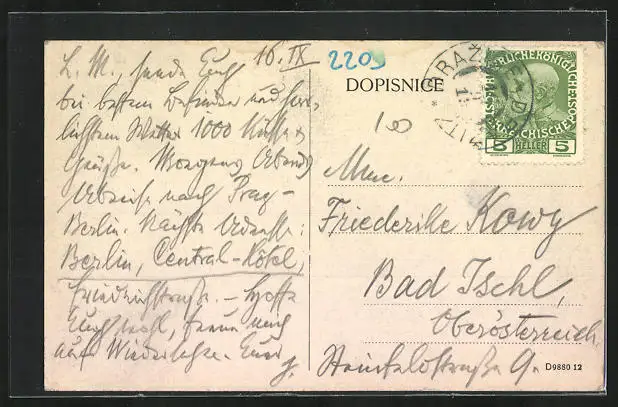 16. IX
L. M., sende Euch
bei bestem Befinden und herr-
lichstem Wetter 1000 Küsse &
Grüße. Morgen Abend
Abreise nach Prag –
Berlin. Nächste Adresse:
Berlin, Central-Hôtel,
Friedrichstraße. – Hoffe
Euch wohl, freue mich
auf Wiedersehen. Euer
2209
DOPISNICE
10
5 HELLER 5
Mme.
Friederike Kowy
Bad Ischl,
Oberösterreich.
9.
D9880 12